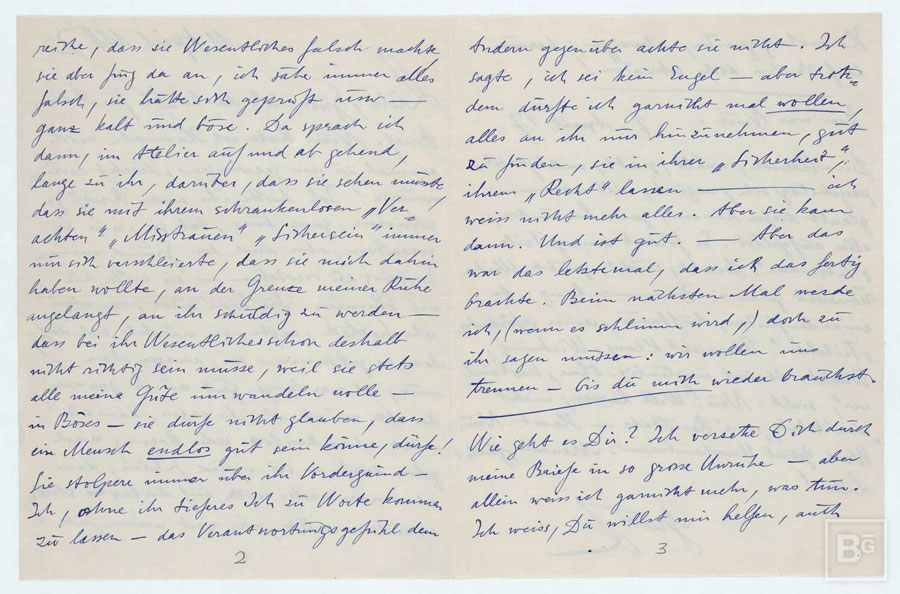 reiche, dass sie Wesentliches falsch machte
sie aber fing da an, ich sähe immer alles
falsch, sie hätte sich geprüft usw —
ganz kalt und böse. Da sprach ich
dann, im Atelier auf und ab gehend,
lange zu ihr, darüber, dass sie sehen müsste,
dass sie mit ihrem schrankenlosen „Ver-
achten“ „Misstrauen“ „Sichersein“ immer
nur sich verschleierte, dass sie mich dahin
haben wollte, an der Grenze meiner Ruhe
angelangt, an ihr schuldig zu werden —
dass bei ihr Wesentliches schon deshalb
nicht richtig sein müsse, weil sie stets
alle meine Güte umwandeln wolle —
in Böses — sie dürfe nicht glauben, dass
ein Mensch endlos gut sein könne, dürfe!
Sie stolpere immer über ihr Vordergrund-
Ich, ohne ihr tieferes Ich zu Worte kommen
zu lassen — das Verantwortungsgefühl dem
2
Andern gegenüber achte sie nicht. Ich
sagte, ich sei kein Engel — aber trotz-
dem dürfte ich garnicht mal wollen,
alles an ihr nur hinzunehmen, gut
zu finden, sie in ihrer „Sicherheit“,
ihrem „Recht“ lassen — ich
weiss nicht mehr alles. Aber sie kam
dann. Und ist gut. — Aber das
war das letztemal, dass ich das fertig
brachte. Beim nächsten Mal werde
ich, (wenn es schlimm wird,) doch zu
ihr sagen müssen: wir wollen uns
trennen — bis du mich wieder brauchst.
Wie geht es Dir? Ich versetze Dich durch
meine Briefe in so grosse Unruhe — aber
allein weiss ich garnicht mehr, was tun.
Ich weiss, Du willst mir helfen, auch
3
BG